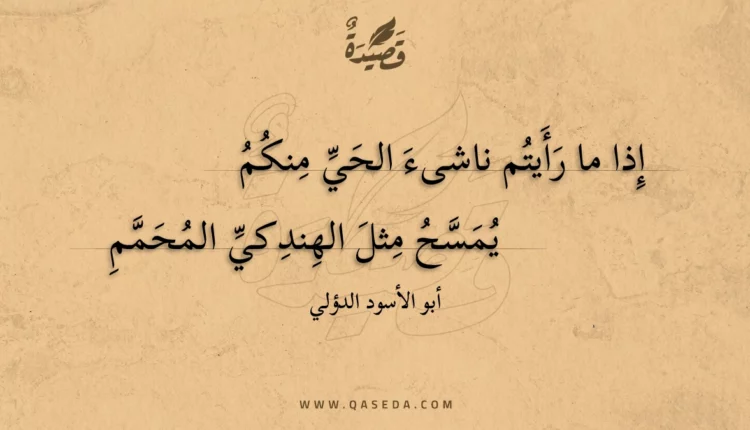 قَصِيدَةٌ
إِذا ما رَأَيتُم ناشىءَ الحَيِّ مِنكُمُ
يُمَسَّحُ مِثلَ الهِندِكيِّ المُحَمَّمِ
أبو الأسود الدؤلي
WWW.QASEDA.COM